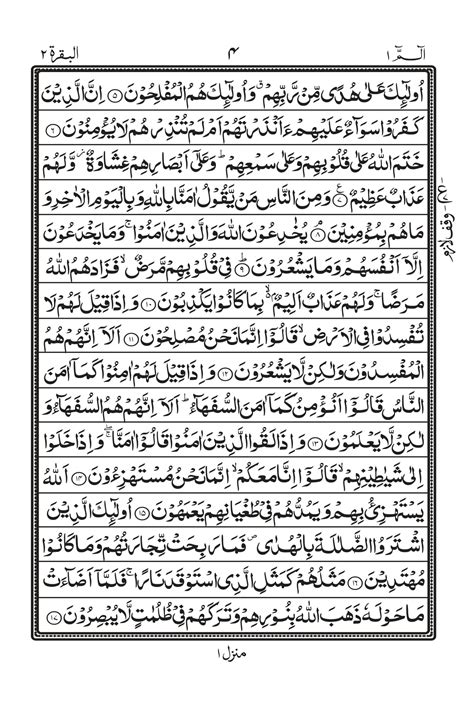 الٓمّٓ ۱ ۴ البقرة ۲
اُولٰٓئِكَ عَلٰى هُدًى مِّنْ رَّبِّهِمْ ۗ وَاُولٰٓئِكَ هُمُ الْمُفْلِحُوْنَ ۝۵ اِنَّ الَّذِيْنَ
كَفَرُوْا سَوَآءٌ عَلَيْهِمْ ءَاَنْذَرْتَهُمْ اَمْ لَمْ تُنْذِرْهُمْ لَا يُؤْمِنُوْنَ ۝۶
خَتَمَ اللّٰهُ عَلٰى قُلُوْبِهِمْ وَعَلٰى سَمْعِهِمْ ؕ وَعَلٰٓى اَبْصَارِهِمْ غِشَاوَةٌ ؗ وَّلَهُمْ
عَذَابٌ عَظِيْمٌ ۝۷ وَمِنَ النَّاسِ مَنْ يَّقُوْلُ اٰمَنَّا بِاللّٰهِ وَبِالْيَوْمِ الْاٰخِرِ وَ
مَا هُمْ بِمُؤْمِنِيْنَ ۝۸ يُخٰدِعُوْنَ اللّٰهَ وَالَّذِيْنَ اٰمَنُوْا ۚ وَمَا يَخْدَعُوْنَ
اِلَّاۤ اَنْفُسَهُمْ وَمَا يَشْعُرُوْنَ ۝۹ فِيْ قُلُوْبِهِمْ مَّرَضٌ ۙ فَزَادَهُمُ اللّٰهُ
مَرَضًا ۚ وَلَهُمْ عَذَابٌ اَلِيْمٌۢ ۙ بِمَا كَانُوْا يَكْذِبُوْنَ ۝۱۰ وَاِذَا قِيْلَ لَهُمْ لَا
تُفْسِدُوْا فِي الْاَرْضِ ۙ قَالُوْۤا اِنَّمَا نَحْنُ مُصْلِحُوْنَ ۝۱۱ اَلَاۤ اِنَّهُمْ هُمُ
الْمُفْسِدُوْنَ وَلٰكِنْ لَّا يَشْعُرُوْنَ ۝۱۲ وَاِذَا قِيْلَ لَهُمْ اٰمِنُوْا كَمَاۤ اٰمَنَ
النَّاسُ قَالُوْۤا اَنُؤْمِنُ كَمَاۤ اٰمَنَ السُّفَهَآءُ ؕ اَلَاۤ اِنَّهُمْ هُمُ السُّفَهَآءُ وَ
لٰكِنْ لَّا يَعْلَمُوْنَ ۝۱۳ وَاِذَا لَقُوا الَّذِيْنَ اٰمَنُوْا قَالُوْۤا اٰمَنَّا ۖۚ وَاِذَا خَلَوْا
اِلٰى شَيٰطِيْنِهِمْ ۙ قَالُوْۤا اِنَّا مَعَكُمْ ۙ اِنَّمَا نَحْنُ مُسْتَهْزِءُوْنَ ۝۱۴ اَللّٰهُ
يَسْتَهْزِئُ بِهِمْ وَيَمُدُّهُمْ فِيْ طُغْيَانِهِمْ يَعْمَهُوْنَ ۝۱۵ اُولٰٓئِكَ الَّذِيْنَ
اشْتَرَوُا الضَّلٰلَةَ بِالْهُدٰى ۪ فَمَا رَبِحَتْ تِّجَارَتُهُمْ وَمَا كَانُوْا
مُهْتَدِيْنَ ۝۱۶ مَثَلُهُمْ كَمَثَلِ الَّذِي اسْتَوْقَدَ نَارًا ۚ فَلَمَّاۤ اَضَآءَتْ
مَا حَوْلَهٗ ذَهَبَ اللّٰهُ بِنُوْرِهِمْ وَتَرَكَهُمْ فِيْ ظُلُمٰتٍ لَّا يُبْصِرُوْنَ ۝۱۷
وقف لازم
منزل ۱